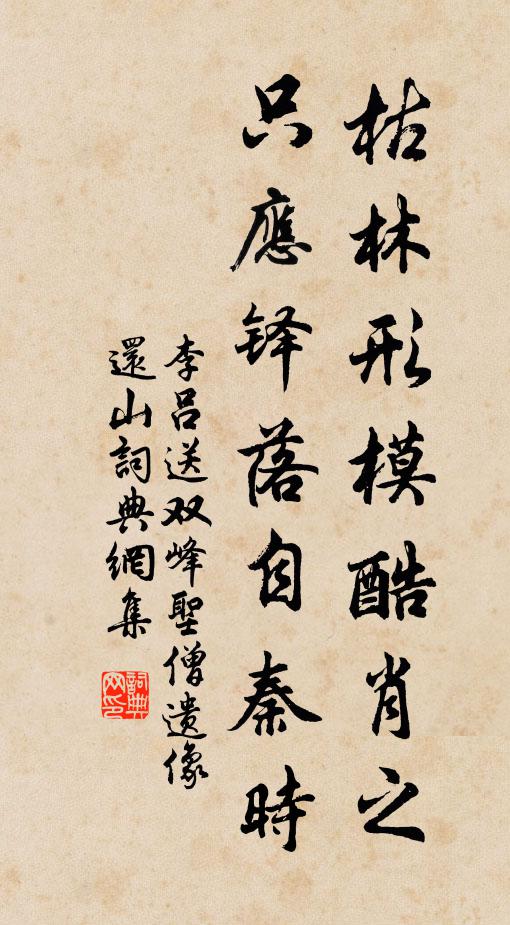 枯林形模酷肖之
只應铎落自秦時
李吕送双峰聖僧遗像
還山詞典網集
詞典网印